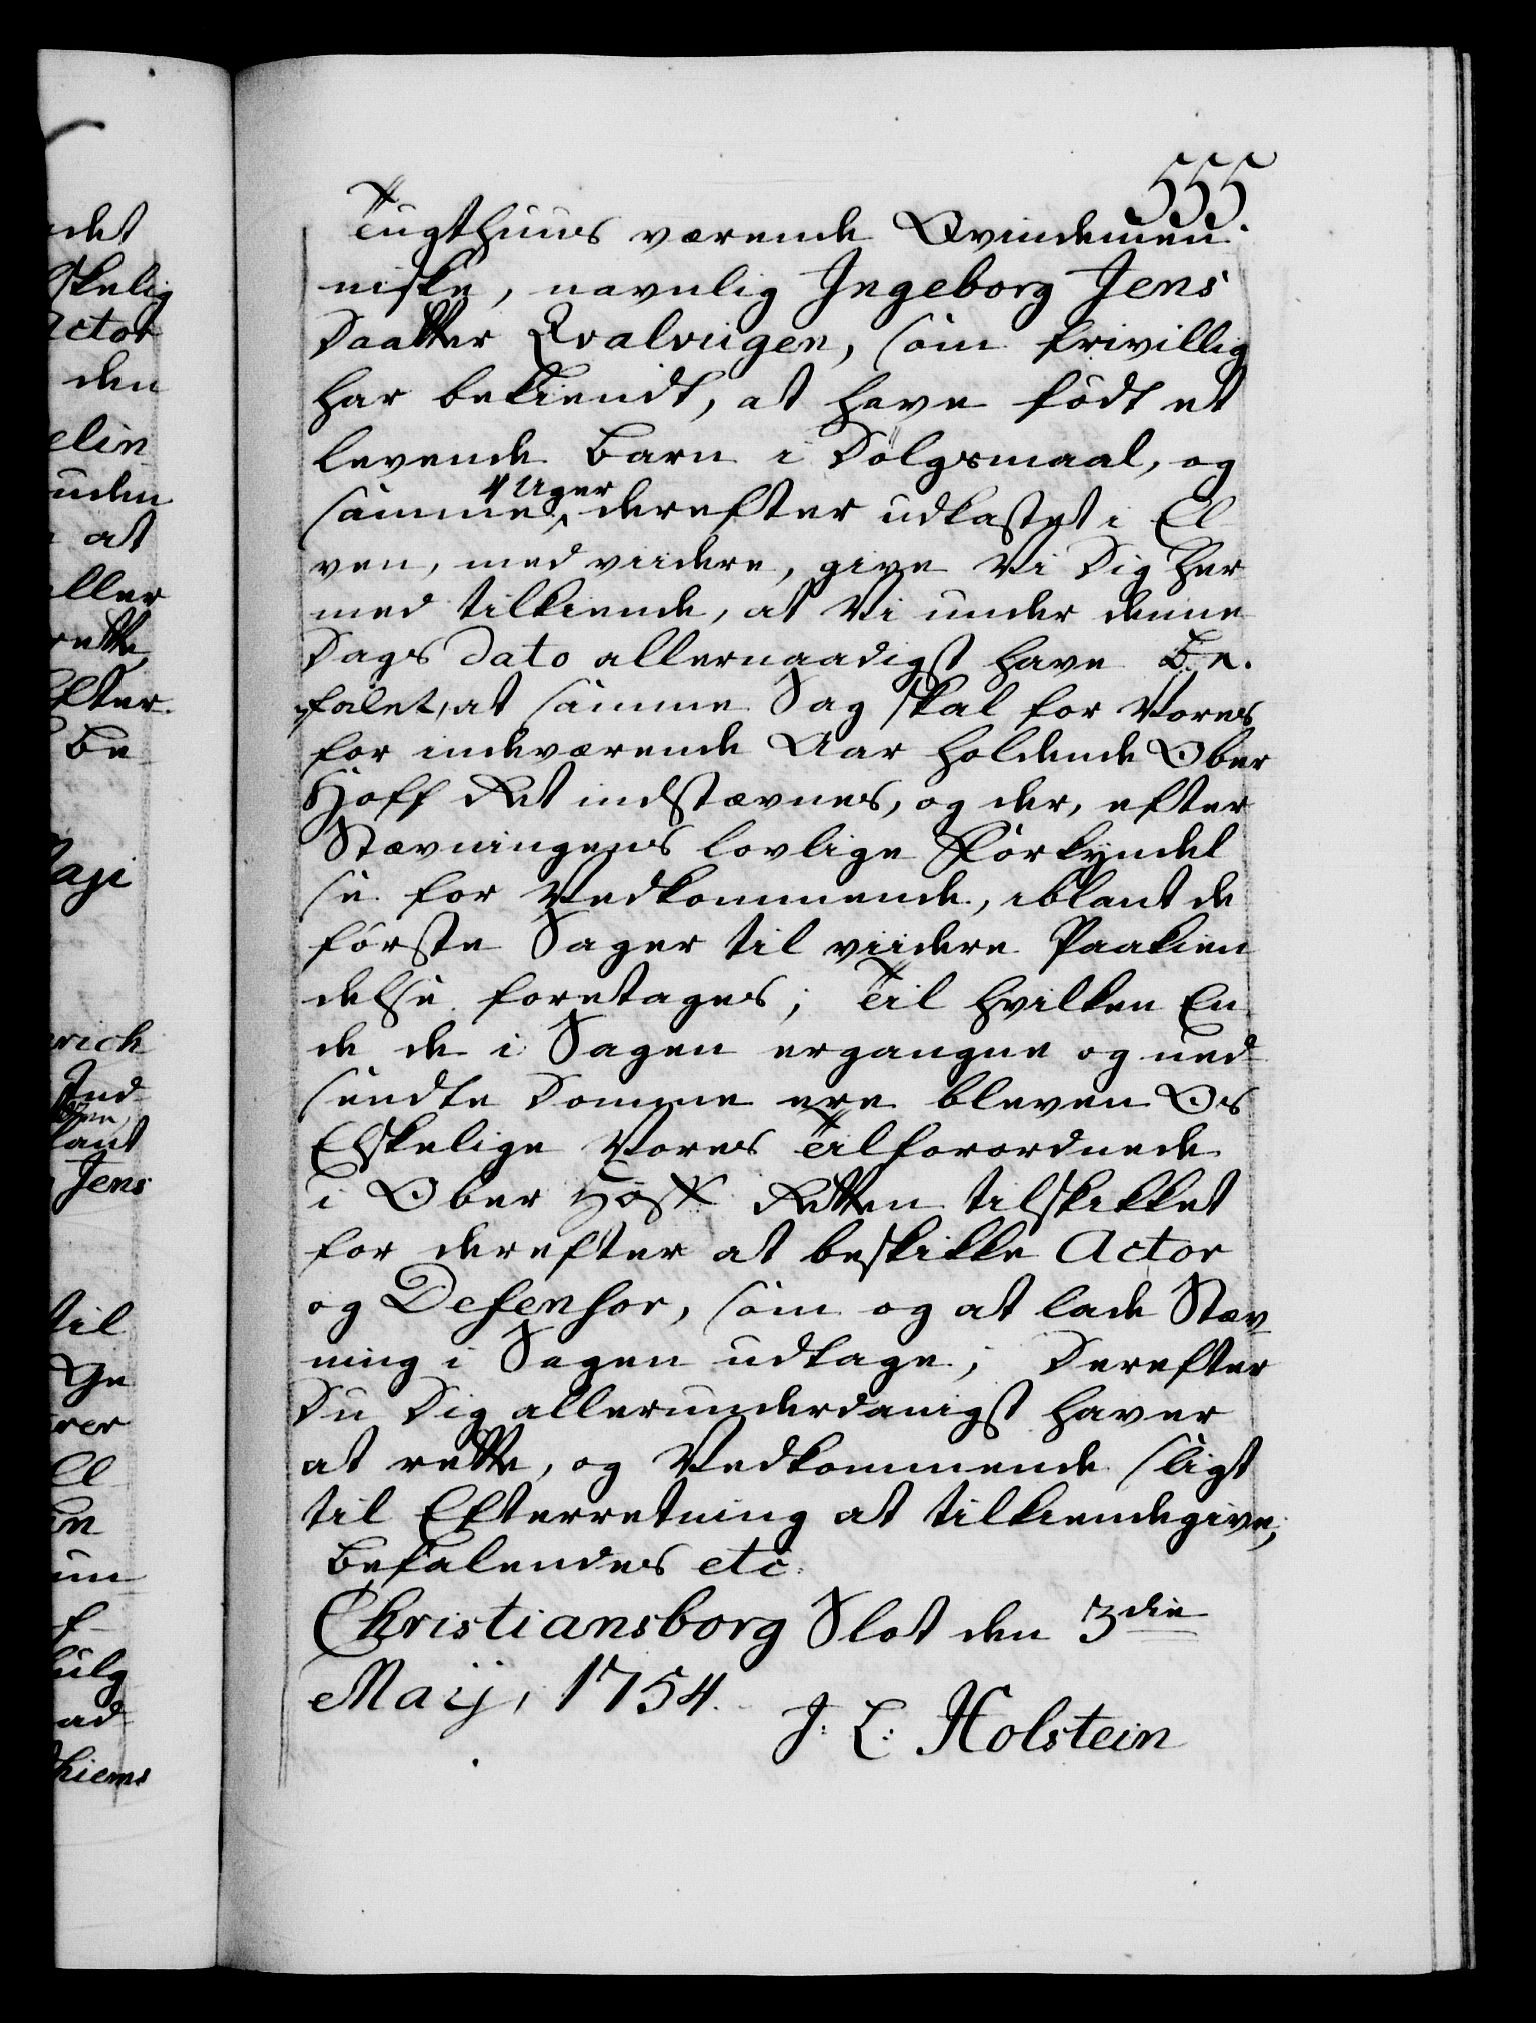 555
Tugthuus værende Qvindemen-
niske, navnlig Ingeborg Jens
Daatter Qvalvigen, som frivillig
har bekiendt, at have födt et
levende Barn i Dölgsmaal, og
samme 4 Uger derefter udkastet i El
ven, med viidere, give Vi Dig her
med tilkiende, at Vi under denne
Dags Dato allernaadigst have Be-
falet, at samme Sag skal for Vores
for indeværende Aar holdende Ober
Hoff Ret indstævnes, og der, efter
Stævningens lovlige Forkyndel
se for Vedkommende, iblant de
förste Sager til viidere Paakien
delse foretages; Til hvilken En
de de i Sagen ergangne og ned
sendte Domme ere bleven Os
Elskelige Vores Tilforordnede
i Ober Hoff Retten tilskikket
for derefter at beskikke Actor
og Defensor, som og at lade Stæv
ning i Sagen udtage; Derefter
Du Dig allerunderdanigst haver
at rette, og Vedkommende sligt
til Efterretning at tilkiendegive,
Befalendes etc:
Christiansborg Slot den 3die
Maij, 1754.
J: L: Holstein